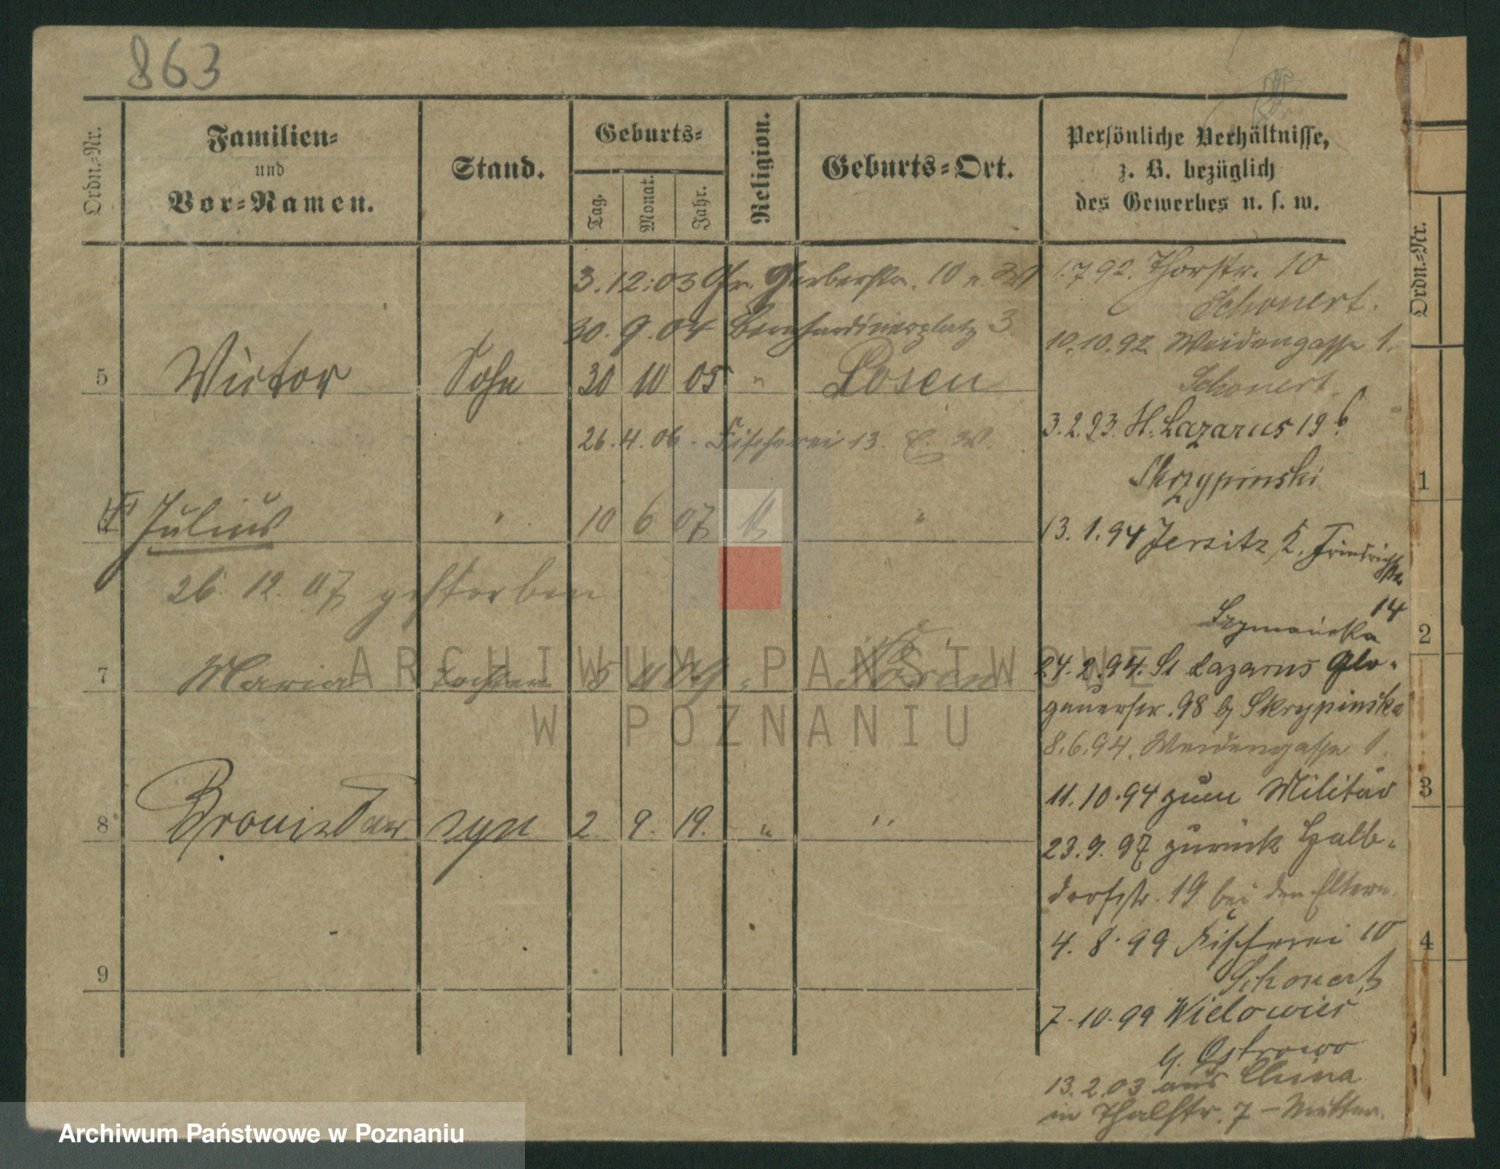 863
Ordn.-Nr.
Familien-
und
Vor-Namen.
Stand.
Geburts-
Tag.
Monat.
Jahr.
Religion.
Geburts-Ort.
Persönliche Verhältnisse,
z. B. bezüglich
des Gewerbes u. s. w.
3.12.03 Gr. Gerberstr. 10 n. W
30.9.04 Bernhardinerplatz 3
5 Victor Sohn 30 10 05 " Posen
26.4.06. Fischerei 13. W.
Julius " 10 6 07 "
26. 12. 07 gestorben
7 Maria Tochter 5 " Posen
8 Bronisław syn 2. 9. 19. " "
9
1.7.92. Thorstr. 10
Schonert.
10.10.92 Weidengasse 1.
Schonert.
3.2.93. St. Lazarus 19 b
Skrzypinski
13.1.94 Jersitz, K. Friedrichstr.
14
Szymanska
24.2.94. St Lazarus Glo-
gauerstr. 98 b/ Skrypinska
8.6.94. Weidengasse 1.
11.10.94 zum Militär
23.9.97 zurück Halb-
dorfstr. 19 bei den Eltern.
4.8.99 Fischerei 10
Schonert
7.10.99 Wielowies
b. Ostrowo
13.2.03 aus China
in Thalstr. 7 – Mutter.
Ordn.-Nr.
1
2
3
4
ARCHIWUM PAŃSTWOWE
W POZNANIU
Archiwum Państwowe w Poznaniu